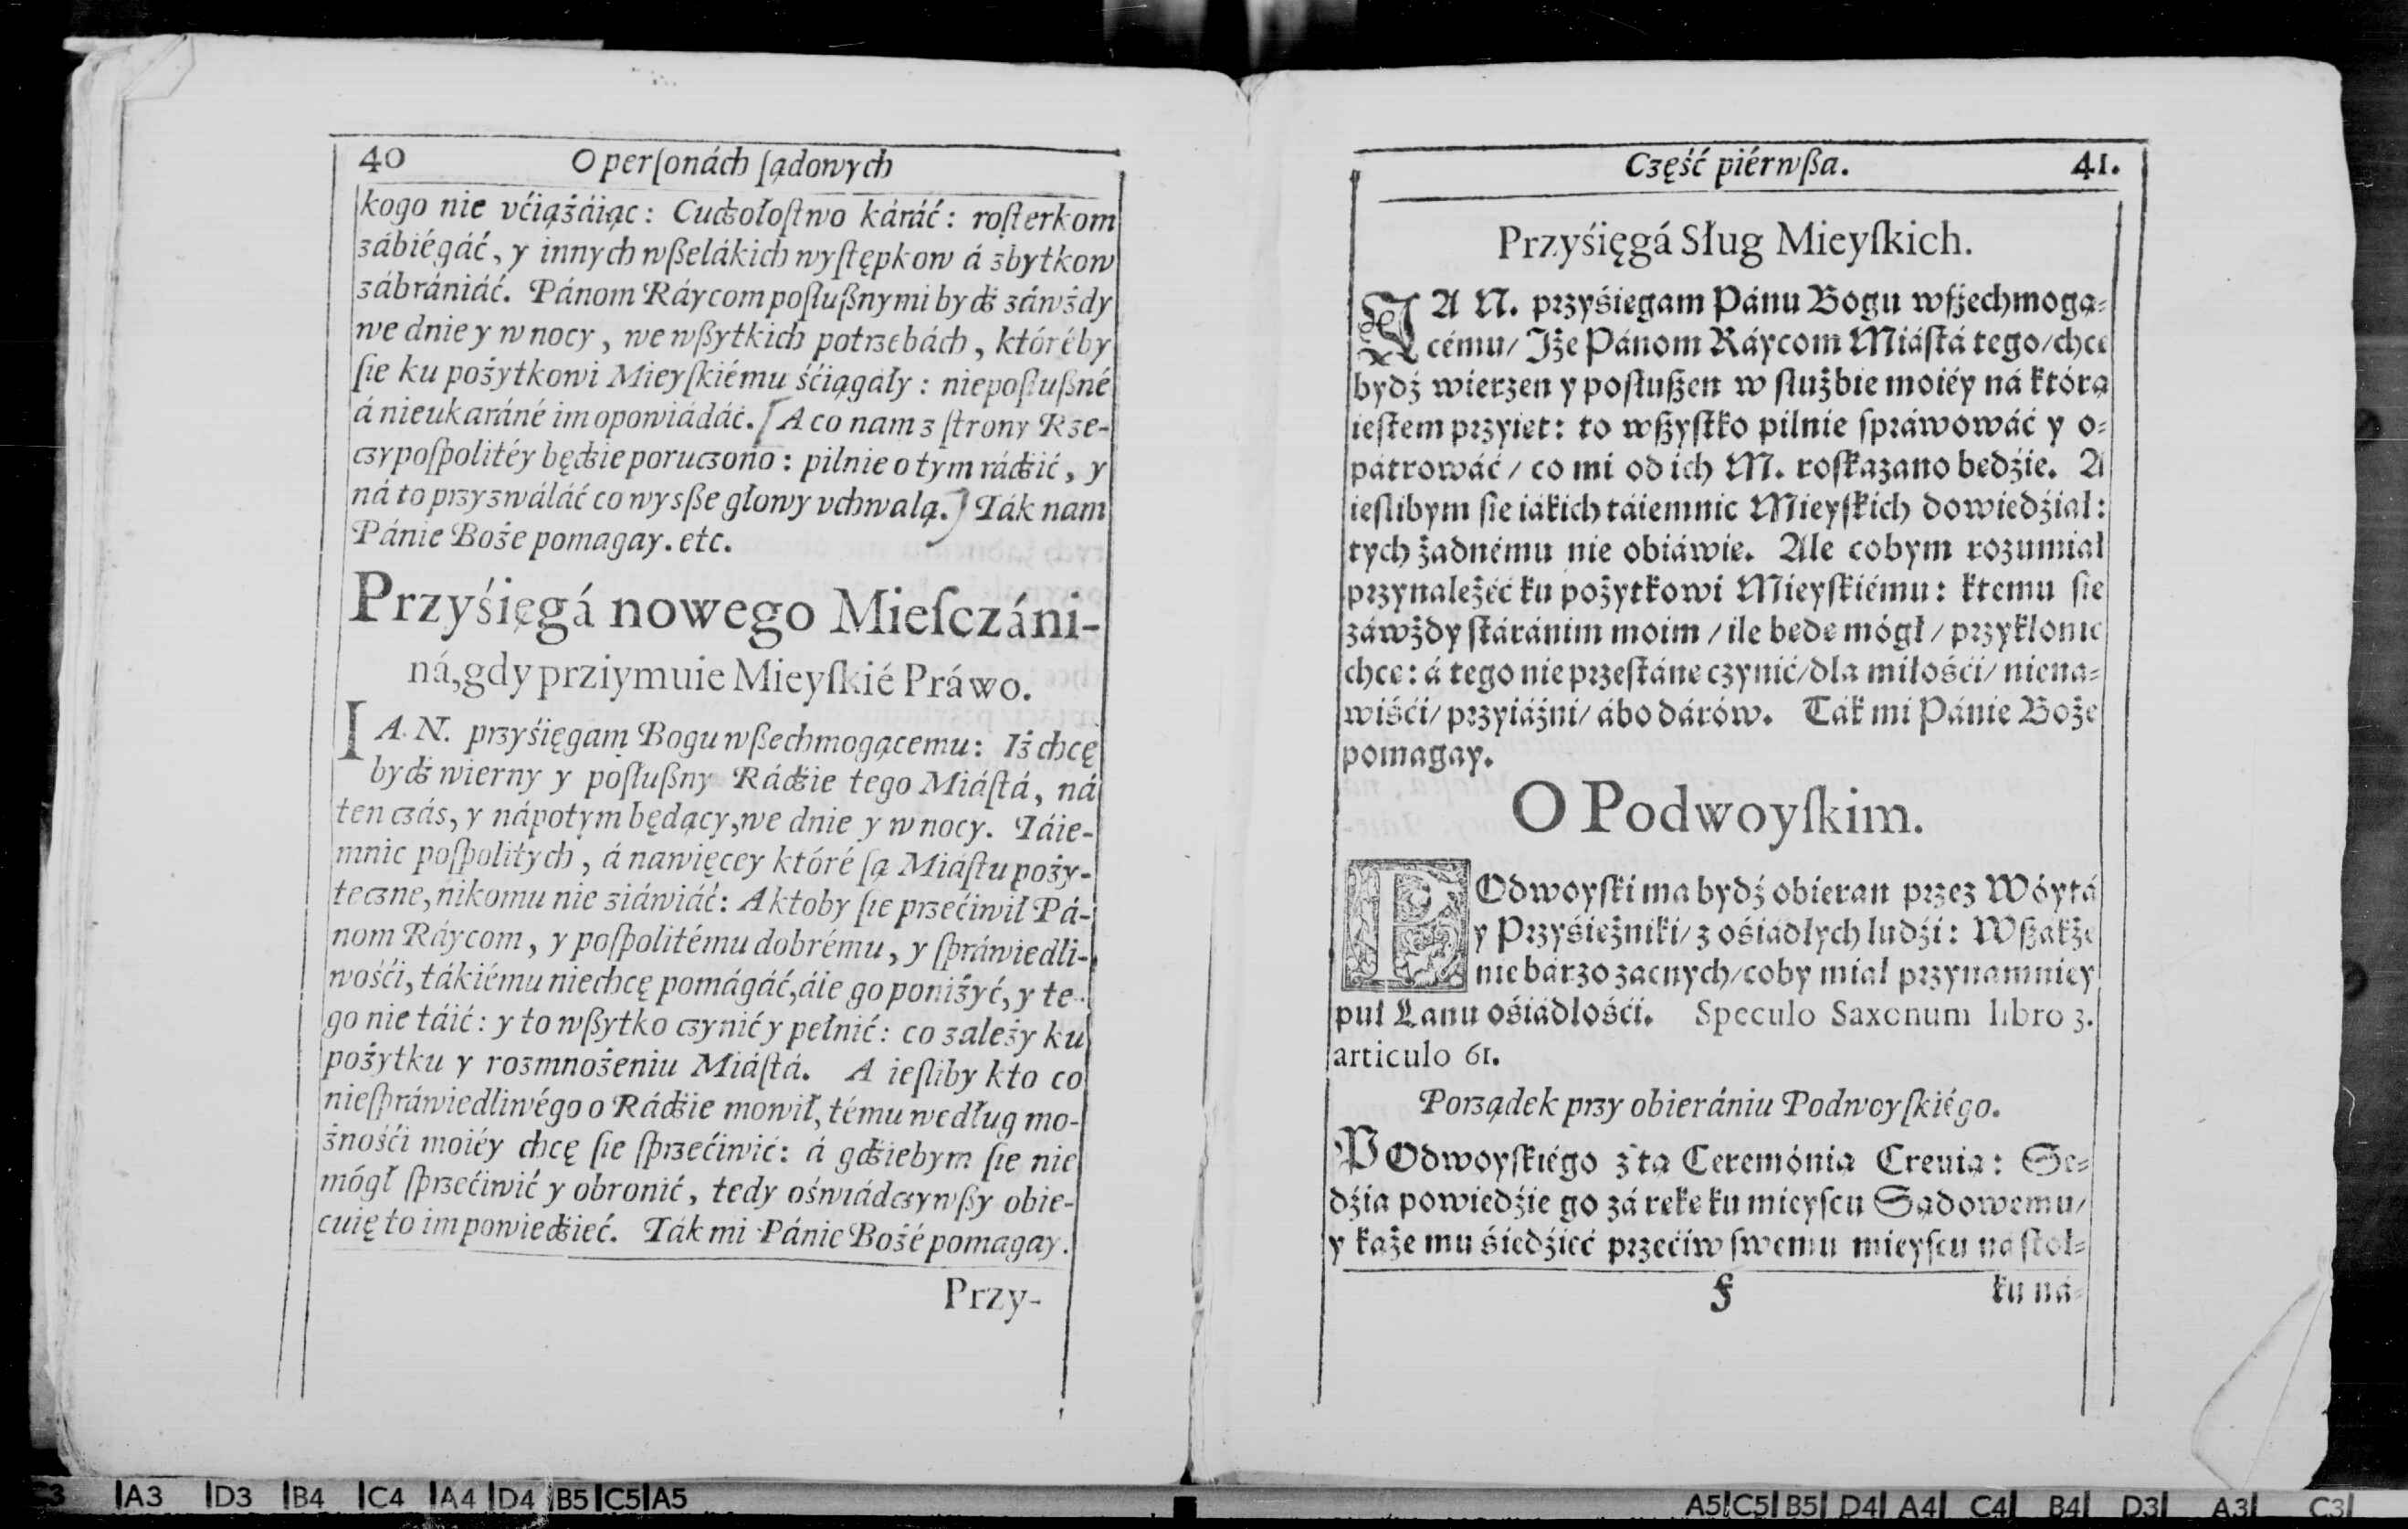 40 O perſonách ſądowych
kogo nie vćiążáiąc: Cudzołoſtwo káráć: roſterkom
zábiégáć, y innych wßelákich wyſtępkow á zbytkow
zábrániáć. Pánom Ráycom poſłußnymi bydź záwżdy
we dnie y w nocy, we wßytkich potrzebách, któréby
ſie ku pożytkowi Mieyſkiému śćiągáły: niepoſłußné
á nieukaráné im opowiádáć. [A co nam z ſtrony Rze-
czypoſpolitéy będzie poruczono: pilnie o tym rádzić, y
ná to przyzwáláć co wysße głowy vchwalą.] Ták nam
Pánie Boże pomagay. etc.
Przyśięgá nowego Mieſczáni-
ná, gdy prziymuie Mieyſkié Práwo.
IA N. przyśięgam Bogu wßechmogącemu: Iż chcę
bydź wierny y poſłußny Rádzie tego Miáſtá, ná
ten czás, y nápotym będący, we dnie y w nocy. Táie-
mnic poſpolitych, á nawięcey któré ſą Miáſtu poży-
teczne, nikomu nie ziáwiáć: A ktoby ſie przećiwił Pá-
nom Ráycom, y poſpolitému dobrému, y ſpráwiedli-
wośći, tákiému niechcę pomágáć, ále go poniżyć, y te-
go nie táić: y to wßytko czynić y pełnić: co zależy ku
pożytku y rozmnożeniu Miáſtá. A ieſliby kto co
nieſpráwiedliwégo o Rádzie mowił, tému według mo-
żnośći moiéy chcę ſie ſprzećiwić: á gdziebym ſie nie
mógł ſprzećiwić y obronić, tedy oświádczywßy obie-
cuię to im powiedzieć. Ták mi Pánie Bożé pomagay.
Przy-
Część piérwßa. 41.
Przyśięgá Sług Mieyſkich.
JA N. przyśiegam Pánu Bogu wſzechmogą-
cému/ Jże Pánom Ráycom Miáſtá tego/ chce
bydź wierzen y poſłuſzen w ſłużbie moiéy ná którą
ieſtem przyiet: to wſzyſtko pilnie ſpráwowáć y o-
pátrowáć/ co mi od ich M. roſkazano bedźie. A
ieſlibym ſie iákich táiemnic Mieyſkich dowiedźiał:
tych żadnému nie obiáwie. Ale cobym rozumiał
przynależéć ku pożytkowi Mieyſkiému: ktemu ſie
záwżdy ſtáránim moim/ ile bede mógł/ przykłonić
chce: á tego nie przeſtáne czynić/ dla miłośći/ niena-
wiśći/ przyiáźni/ ábo dárów. Ták mi Pánie Boże
pomagay.
O Podwoyſkim.
POdwoyſki ma bydź obieran przez Wóytá
y Przyśieżniki/ z ośiádłych ludźi: Wſzákże
nie bárzo zacnych/ coby miał przynamniey
puł Łanu ośiádłośći. Speculo Saxonum libro 3.
articulo 61.
Porządek przy obierániu Podwoyſkiégo.
POdwoyſkiégo z tą Ceremónią Creuią: Se-
dźia powiedźie go zá reke ku mieyſcu Sądowemu/
y każe mu śiedźieć przećiw ſwemu mieyſcu ná ſtoł-
F ku ná-
A3 D3 B4 C4 A4 D4 B5 C5 A5
A5 C5 B5 D4 A4 C4 B4 D3 A3 C3